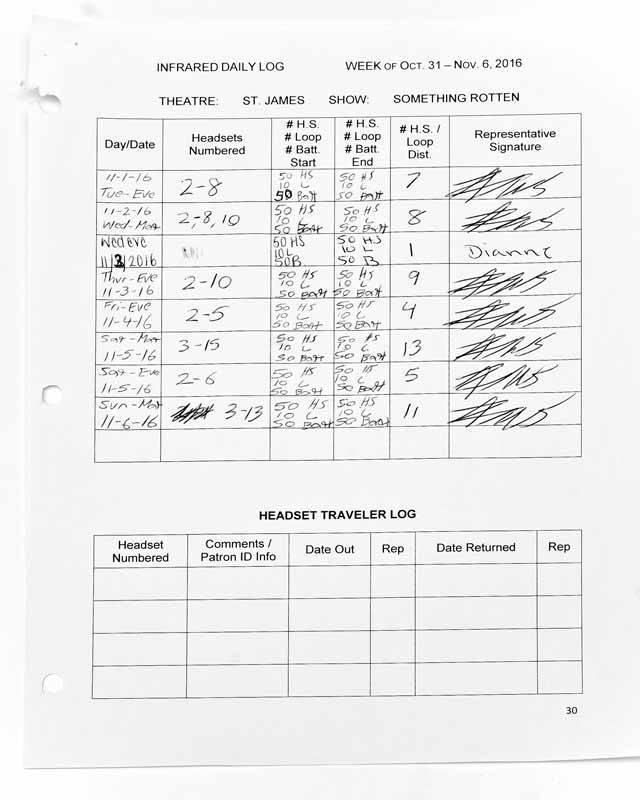 INFRARED DAILY LOG WEEK OF OCT. 31 – NOV. 6, 2016
THEATRE: ST. JAMES SHOW: SOMETHING ROTTEN
Day/Date Headsets Numbered # H.S. # Loop # Batt. Start # H.S. # Loop # Batt. End # H.S. / Loop Dist. Representative Signature
11-1-16 Tue-Eve 2-8 50 HS 10 L 50 Batt 50 HS 10 L 50 Batt 7
11-2-16 Wed-Mat 2,-8, 10 50 HS 10 L 50 Batt 50 HS 10 L 50 Batt 8
Wed eve 11/2/2016 50 HS 10 L 50 B 50 H.S 10 L 50 B 1 Dianne
Thur-Eve 11-3-16 2-10 50 HS 10 L 50 Batt 50 HS 10 L 50 Batt 9
Fri-Eve 11-4-16 2-5 50 HS 10 L 50 Batt 50 HS 10 L 50 Batt 4
Sat-Mat 11-5-16 3-15 50 HS 10 L 50 Batt 50 HS 10 L 50 Batt 13
Sat-Eve 11-5-16 2-6 50 HS 10 L 50 Batt 50 HS 10 L 50 Batt 5
Sun-Mat 11-6-16 3-13 50 HS 10 L 50 Batt 50 HS 10 L 50 Batt 11
HEADSET TRAVELER LOG
Headset Numbered Comments / Patron ID Info Date Out Rep Date Returned Rep
30